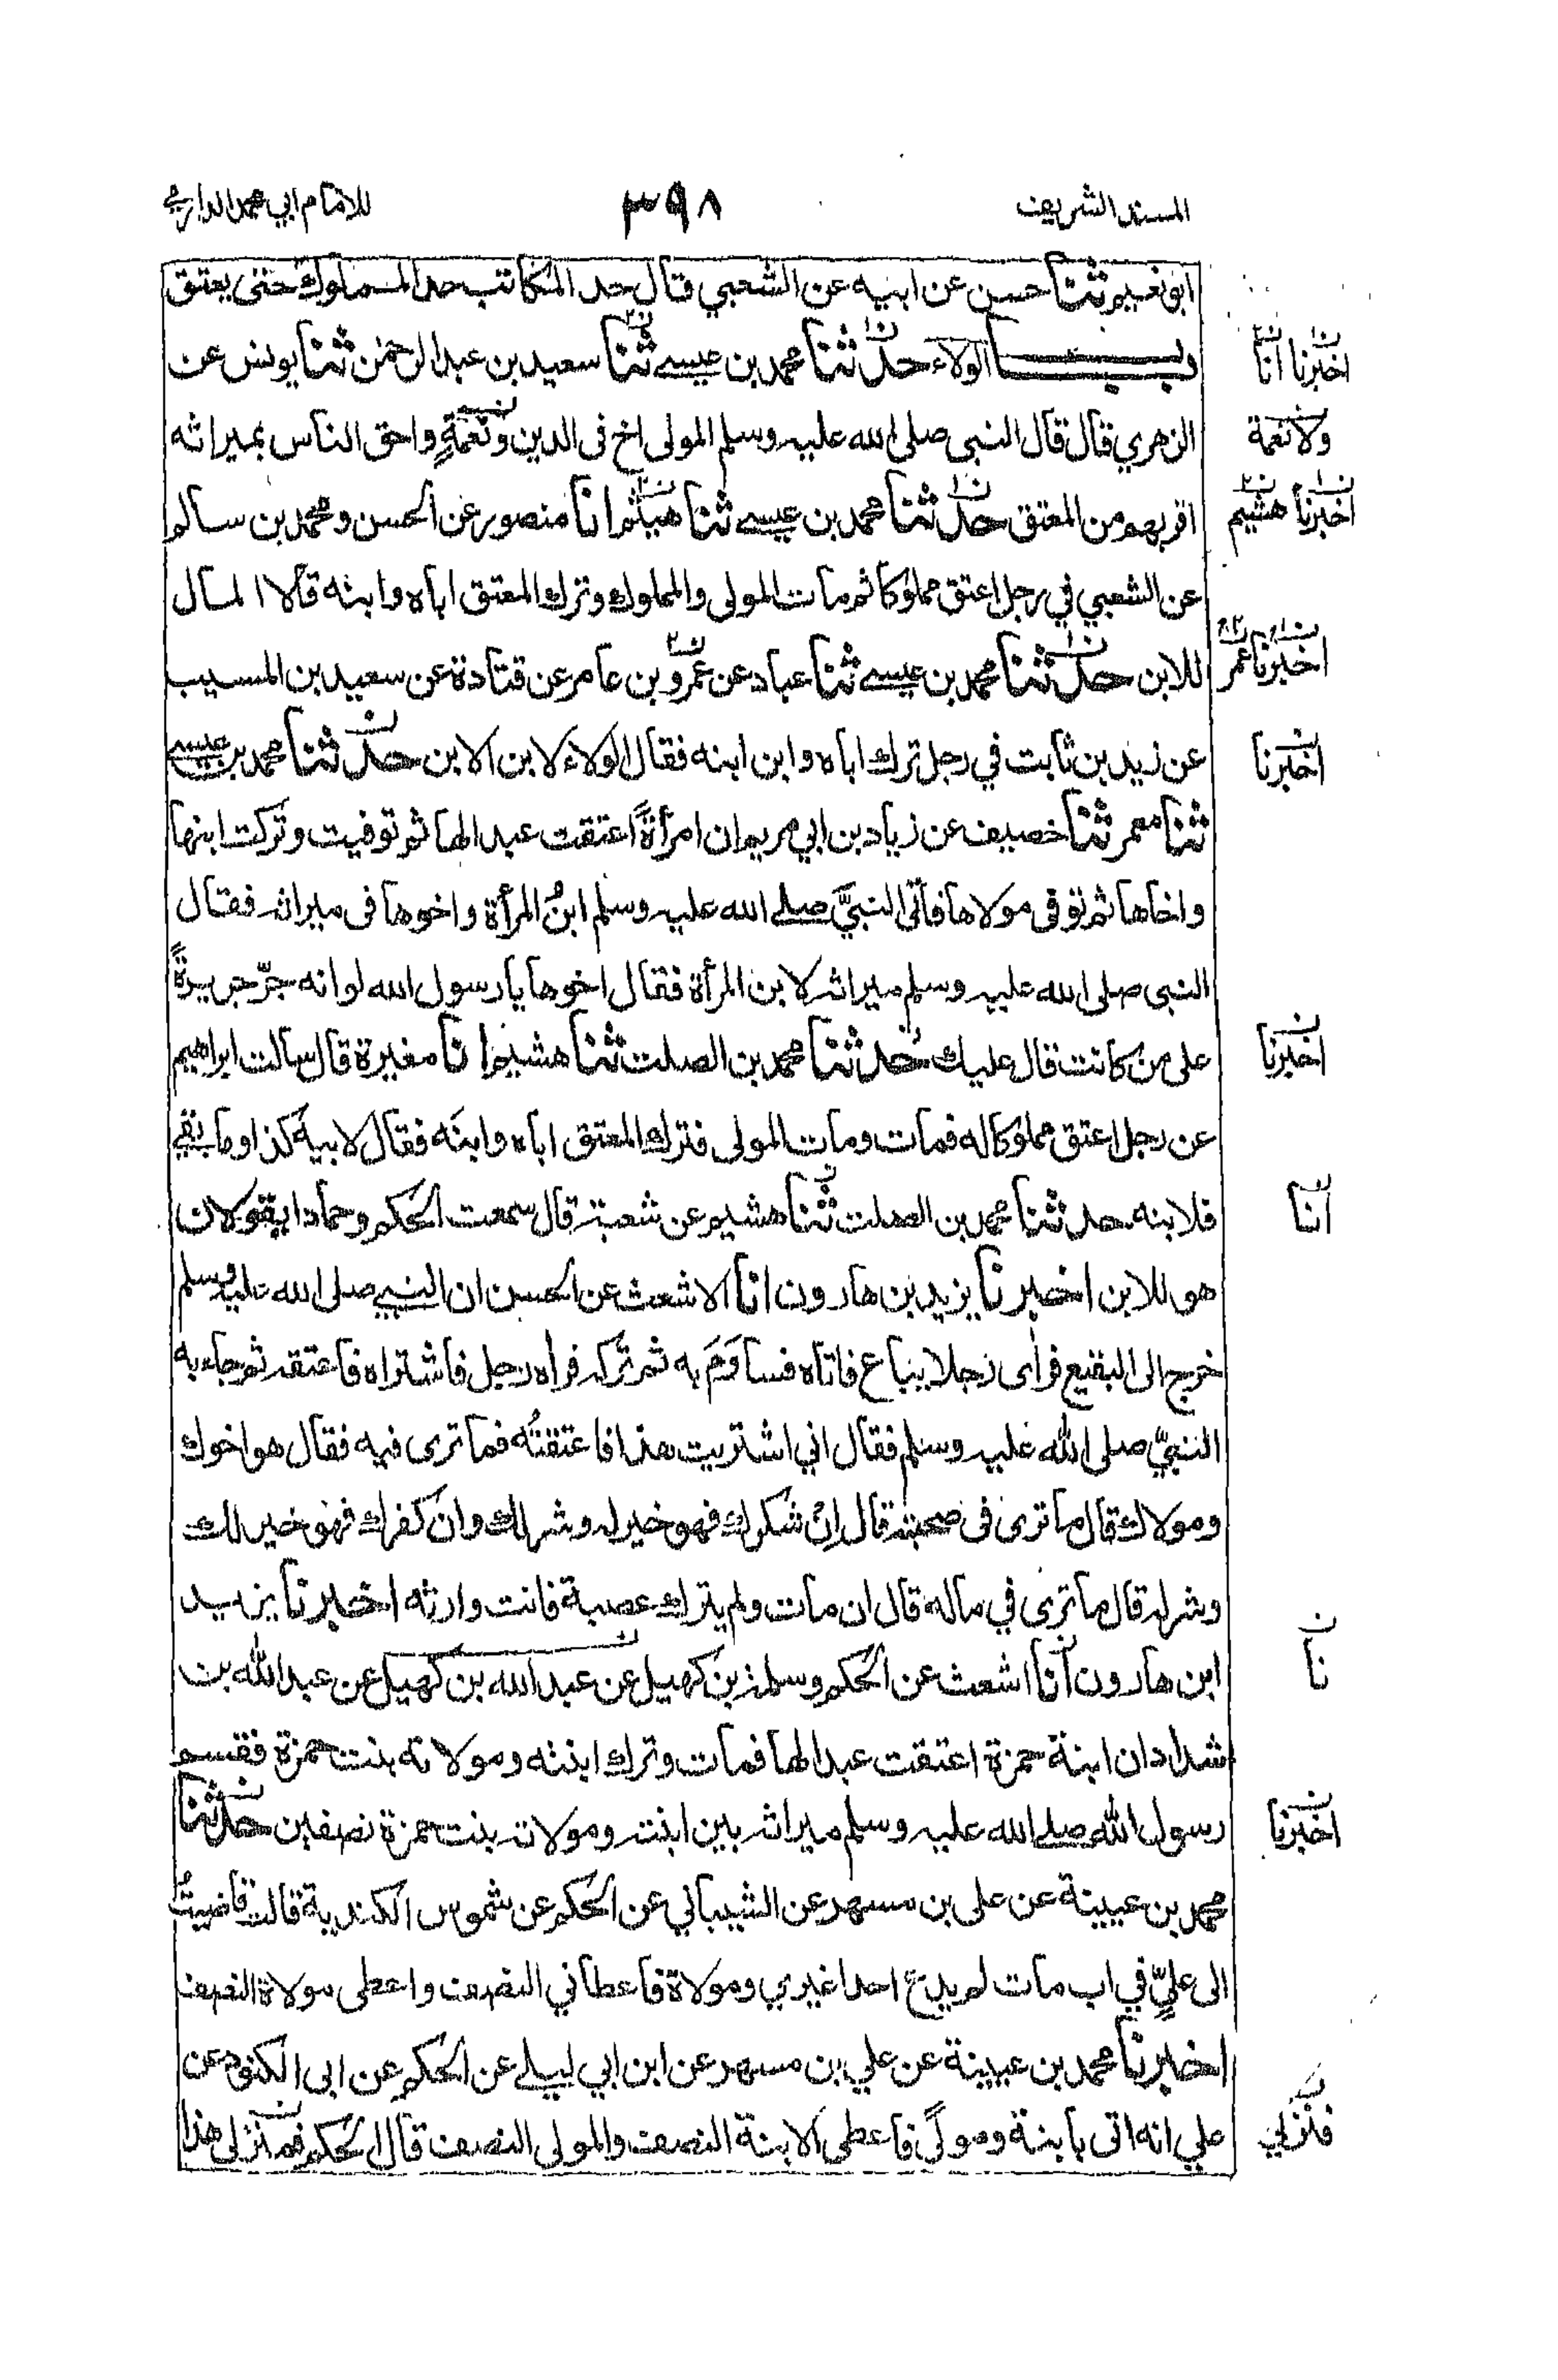 المسند الشريف ٣٩٨ للامام ابي محمد الدارمي
ابو نعيم ثنا حسن عن ابيه عن الشعبي قال حد المكاتب حد المملوك حتى يعتق
باب الولاء حدثنا محمد بن عيسى ثنا سعيد بن عبد الرحمن ثنا يونس عن
الزهري قال قال النبى صلى الله عليه وسلم المولى اخ فى الدين ونعمة واحق الناس بميراثه
اقربهم من المعتق حدثنا محمد بن عيسى ثنا هيثم انا منصور عن الحسن ومحمد بن سالم
عن الشعبي في رجل اعتق مملوكا ثم مات المولى والمملوك وترك المعتق اباه وابنه قالا المال
للابن حدثنا محمد بن عيسى ثنا عباد عن عمرو بن عامر عن قتادة عن سعيد بن المسيب
عن زيد بن ثابت في رجل ترك اباه وابن ابنه فقال الولاء لابن الابن حدثنا محمد بن عيسى
ثنا معمر ثنا خصيف عن زياد بن ابي مريم ان امرأة اعتقت عبدا لها ثم توفيت وتركت ابنها
واخاها ثم توفى مولاها فأتى النبيَّ صلى الله عليه وسلم ابنُ المرأة واخوها فى ميراثه فقال
النبى صلى الله عليه وسلم ميراثه لابن المرأة فقال اخوها يا رسول الله لو انه جرّ جريرةً
على من كانت قال عليك حدثنا محمد بن الصلت ثنا هشيم انا مغيرة قال سالت ابراهيم
عن رجل اعتق مملوكا له فمات ومات المولى فترك المعتق اباه وابنه فقال لابيه كذا وما بقي
فلابنه حدثنا محمد بن الصلت ثنا هشيم عن شعبة قال سمعت الحكم وحمادا يقولان
هو للابن اخبرنا يزيد بن هارون انا الاشعث عن الحسن ان النبي صلى الله عليه وسلم
خرج الى البقيع فرأى رجلا يباع فاتاه فساوَمَ به ثم تركه فراه رجل فاشتراه فاعتقه ثم جاء به
النبيّ صلى الله عليه وسلم فقال اني اشتريت هذا فاعتقتُه فما ترى فيه فقال هو اخوك
ومولاك قال ما ترى فى صحبته قال اِنْ شكرك فهو خير له وشر لك وان كفرك فهو خير لك
وشر له قال ما ترى في ماله قال ان مات ولم يترك عصبة فانت وارثه اخبرنا يزيد
ابن هارون انا اشعث عن الحكم وسلمة بن كهيل عن عبد الله بن كهيل عن عبد الله بن
شداد ان ابنة حمزة اعتقت عبدا لها فمات وترك ابنته ومولاته بنت حمزة فقسم
رسول الله صلى الله عليه وسلم ميراثه بين ابنته ومولاته بنت حمزة نصفين حدثنا
محمد بن عيينة عن على بن مسهر عن الشيباني عن الحكم عن شموس الكندية قالت قاضيتُ
الى عليٍّ في اب مات لم يدع احدا غيري ومولاة فاعطاني النصف واعطى مولاة النصف
اخبرنا محمد بن عيينة عن علي بن مسهر عن ابن ابي ليلى عن الحكم عن ابى الكنود عن
علي انه اتى بابنة ومولًى فاعطى الابنة النصف والمولى النصف قال الحكم فمنزلى هذا
اخبرنا انا
ولا نعمة
اخبرنا هشيم
اخبرنا عمر
اخبرنا
اخبرنا
انا
نا
اخبرنا
فنزلي